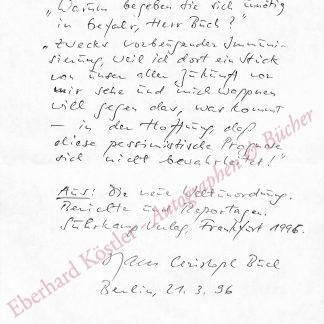 „Warum begeben Sie sich unnötig
in Gefahr, Herr Buch?“
„Zwecks vorbeugender Immuni-
sierung, weil ich dort ein Stück
von unser aller Zukunft vor
mir sehe und mich wappnen
will gegen das, was kommt
– in der Hoffnung, daß
diese pessimistische Prognose
sich nicht bewahrheitet!“
Aus: Die neue Weltunordnung.
Berichte und Reportagen.
Suhrkamp Verlag, Frankfurt 1996.
Hans Christoph Buch
Berlin, 21. 3. 96
Eberhard Köstler - Autographen & Bücher